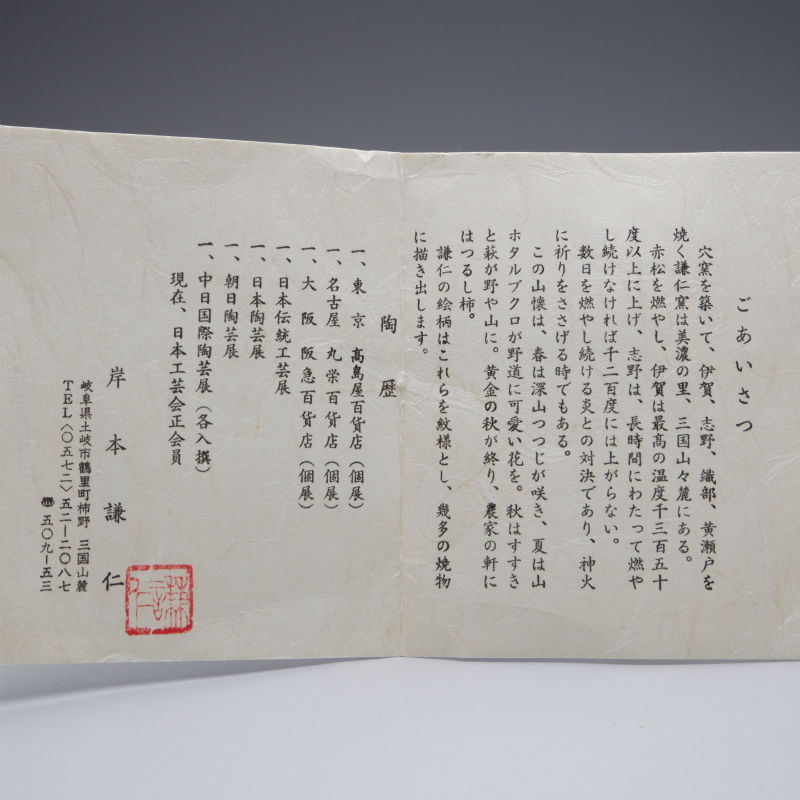 ごあいさつ
穴窯を築いて、伊賀、志野、織部、黄瀬戸を
焼く謙仁窯は美濃の里、三国山々麓にある。
赤松を燃やし、伊賀は最高の温度千三百五十
度以上に上げ、志野は、長時間にわたって燃や
し続けなければ千二百度には上がらない。
数日を燃やし続ける炎との対決であり、神火
に祈りをささげる時でもある。
この山懐は、春は深山つつじが咲き、夏は山
ホタルブクロが野道に可愛い花を。秋はすすき
と萩が野や山に。黄金の秋が終り、農家の軒に
はつるし柿。
謙仁の絵柄はこれらを紋様とし、幾多の焼物
に描き出します。
陶歴
一、東京 高島屋百貨店（個展）
一、名古屋 丸栄百貨店（個展）
一、大阪 阪急百貨店（個展）
一、日本伝統工芸展
一、日本陶芸展
一、朝日陶芸展
一、中日国際陶芸展（各入撰）
現在、日本工芸会正会員
岸本謙仁
謙仁
岐阜県土岐市鶴里町柿野 三国山麓
TEL〈〇五七二〉五二ー二〇八七
〒五〇九ー五三